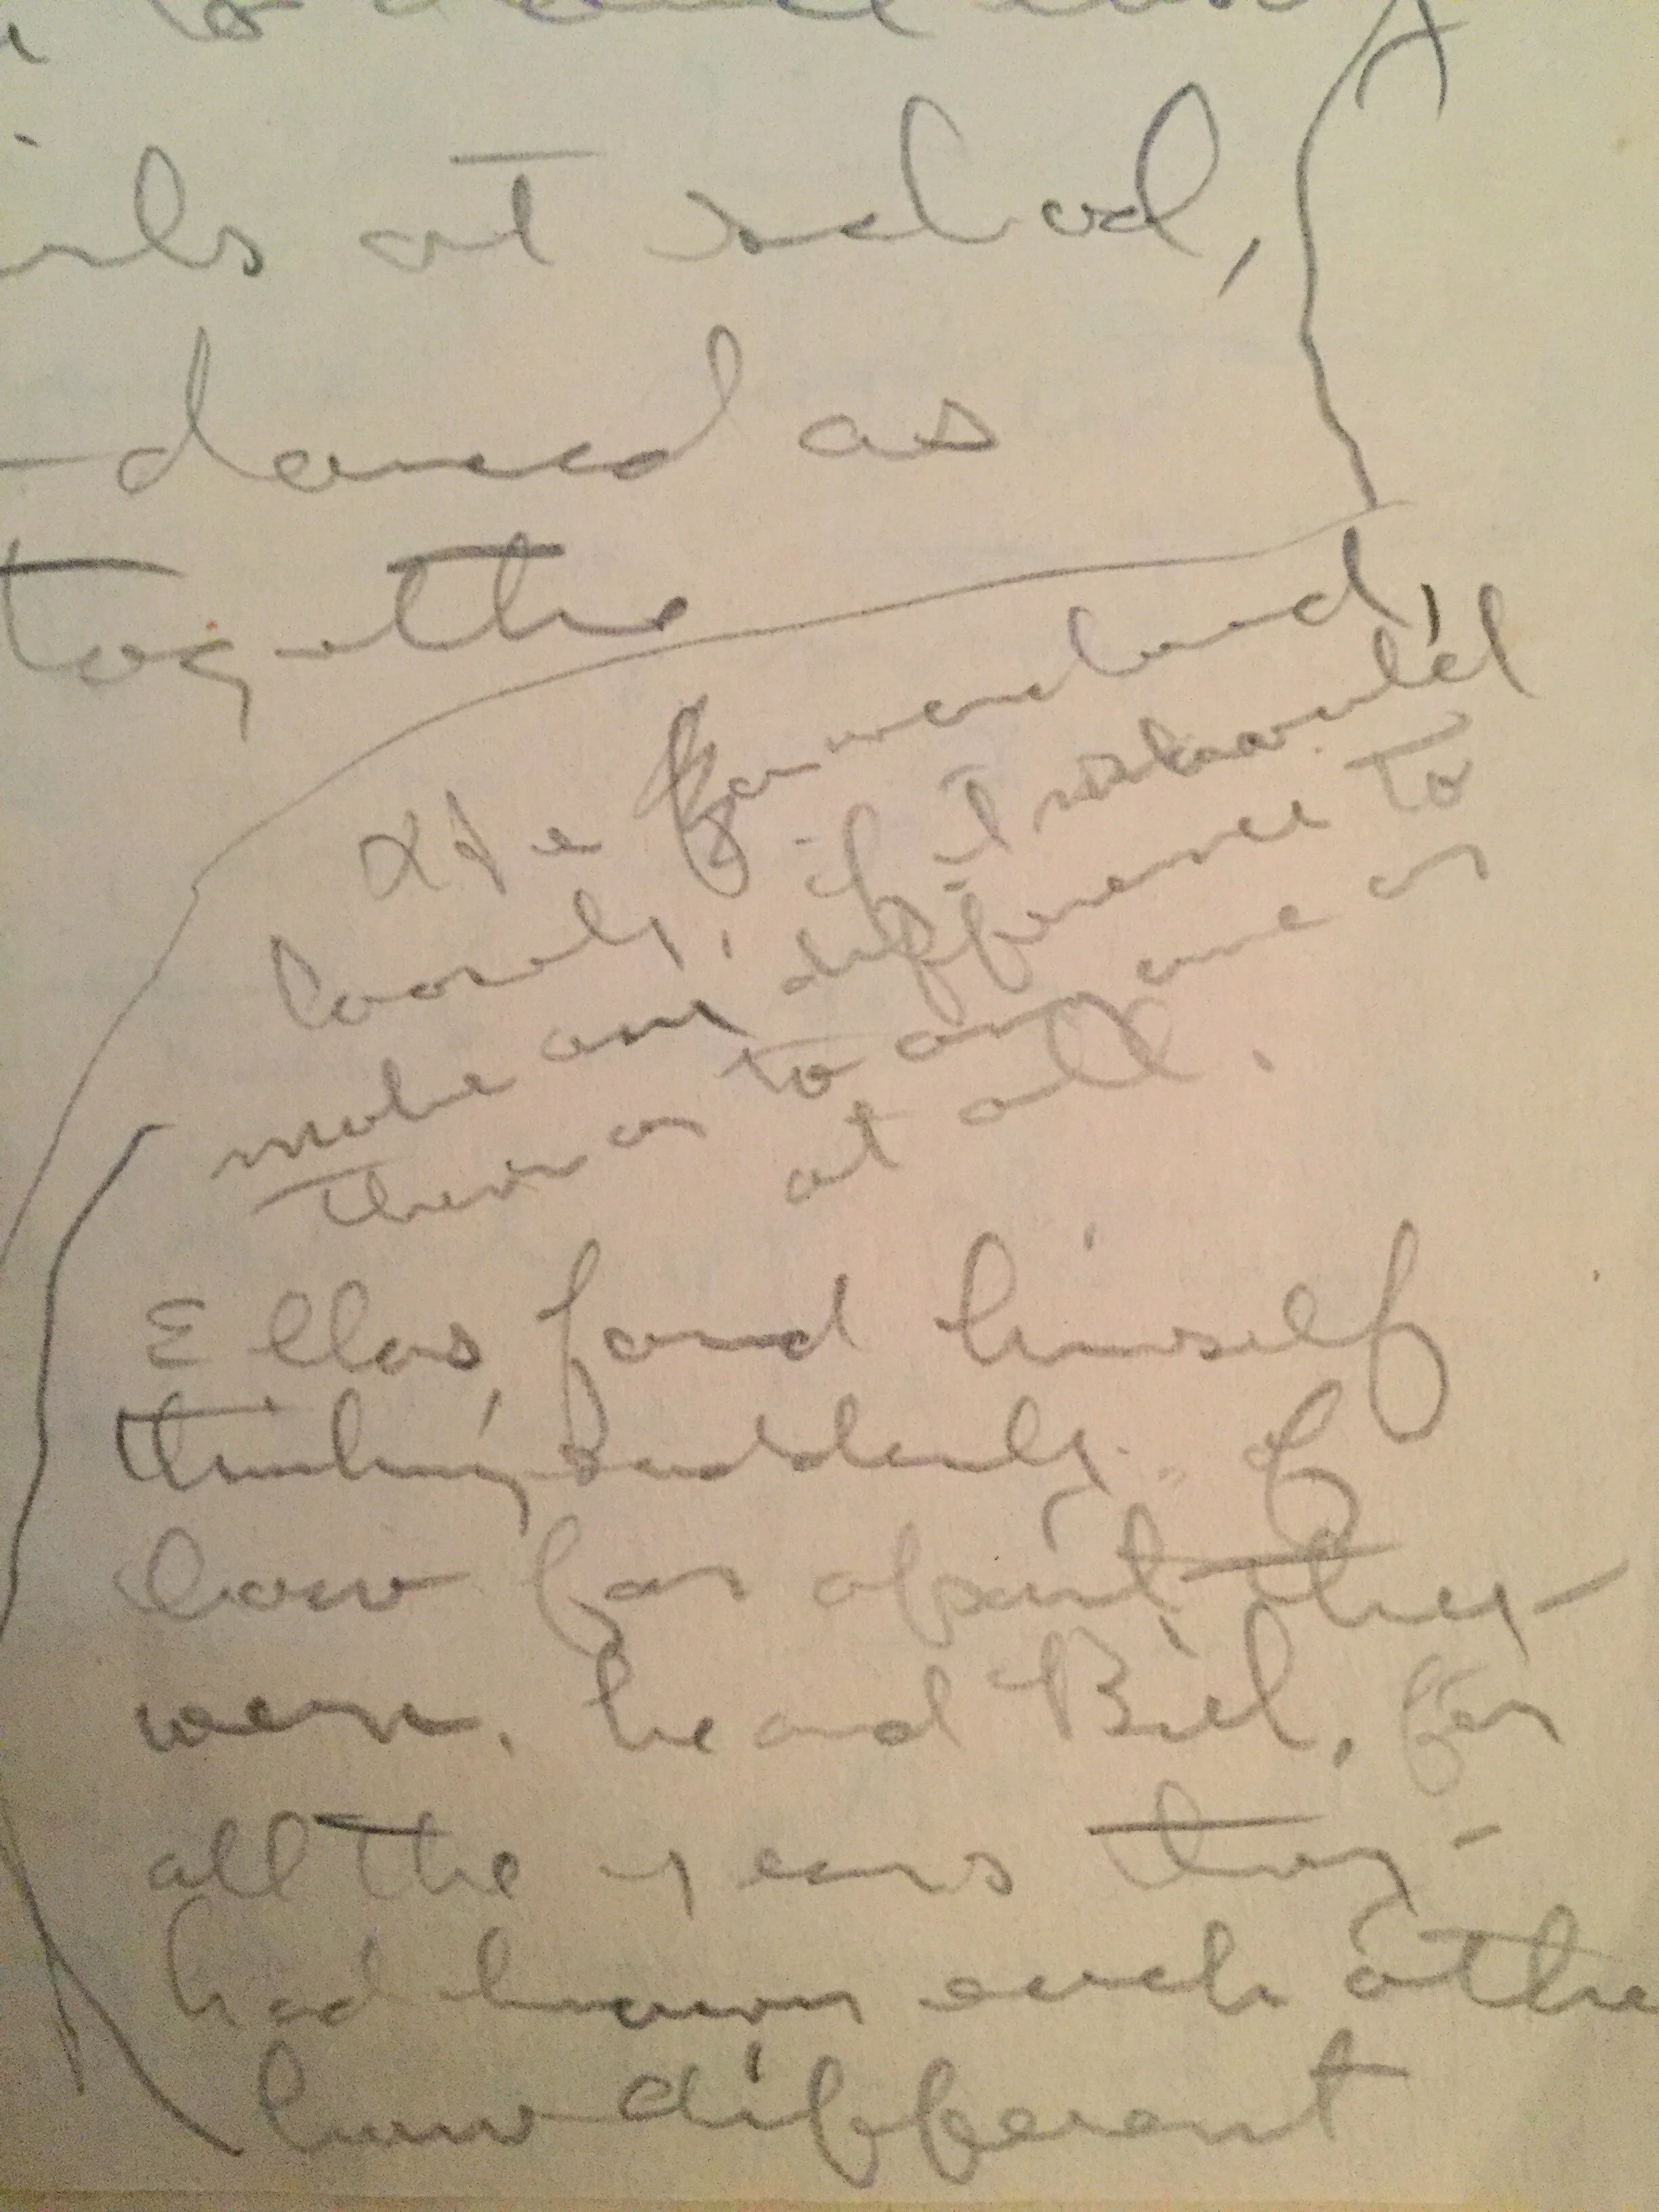 at school,
danced as
together
He wondered,
loosely, if it should
make any difference to
them or to any one or
at all.
Ellas, found himself
thinking suddenly of
how far apart they
were, he and Bill, for
all the years they
had known each other
how different